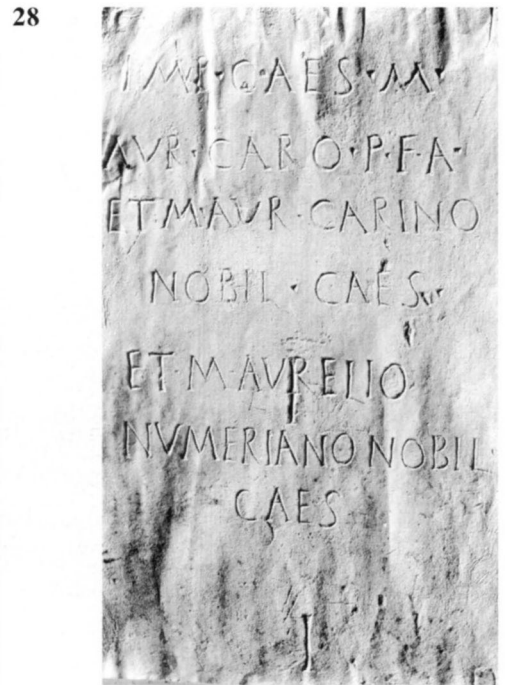 28
IMP·CAES·M·
AVR·CARO·P·F·A·
ET·M·AVR·CARINO
NOBIL·CAES·
ET·M·AVRELIO
NVMERIANO NOBIL·
CAES
I